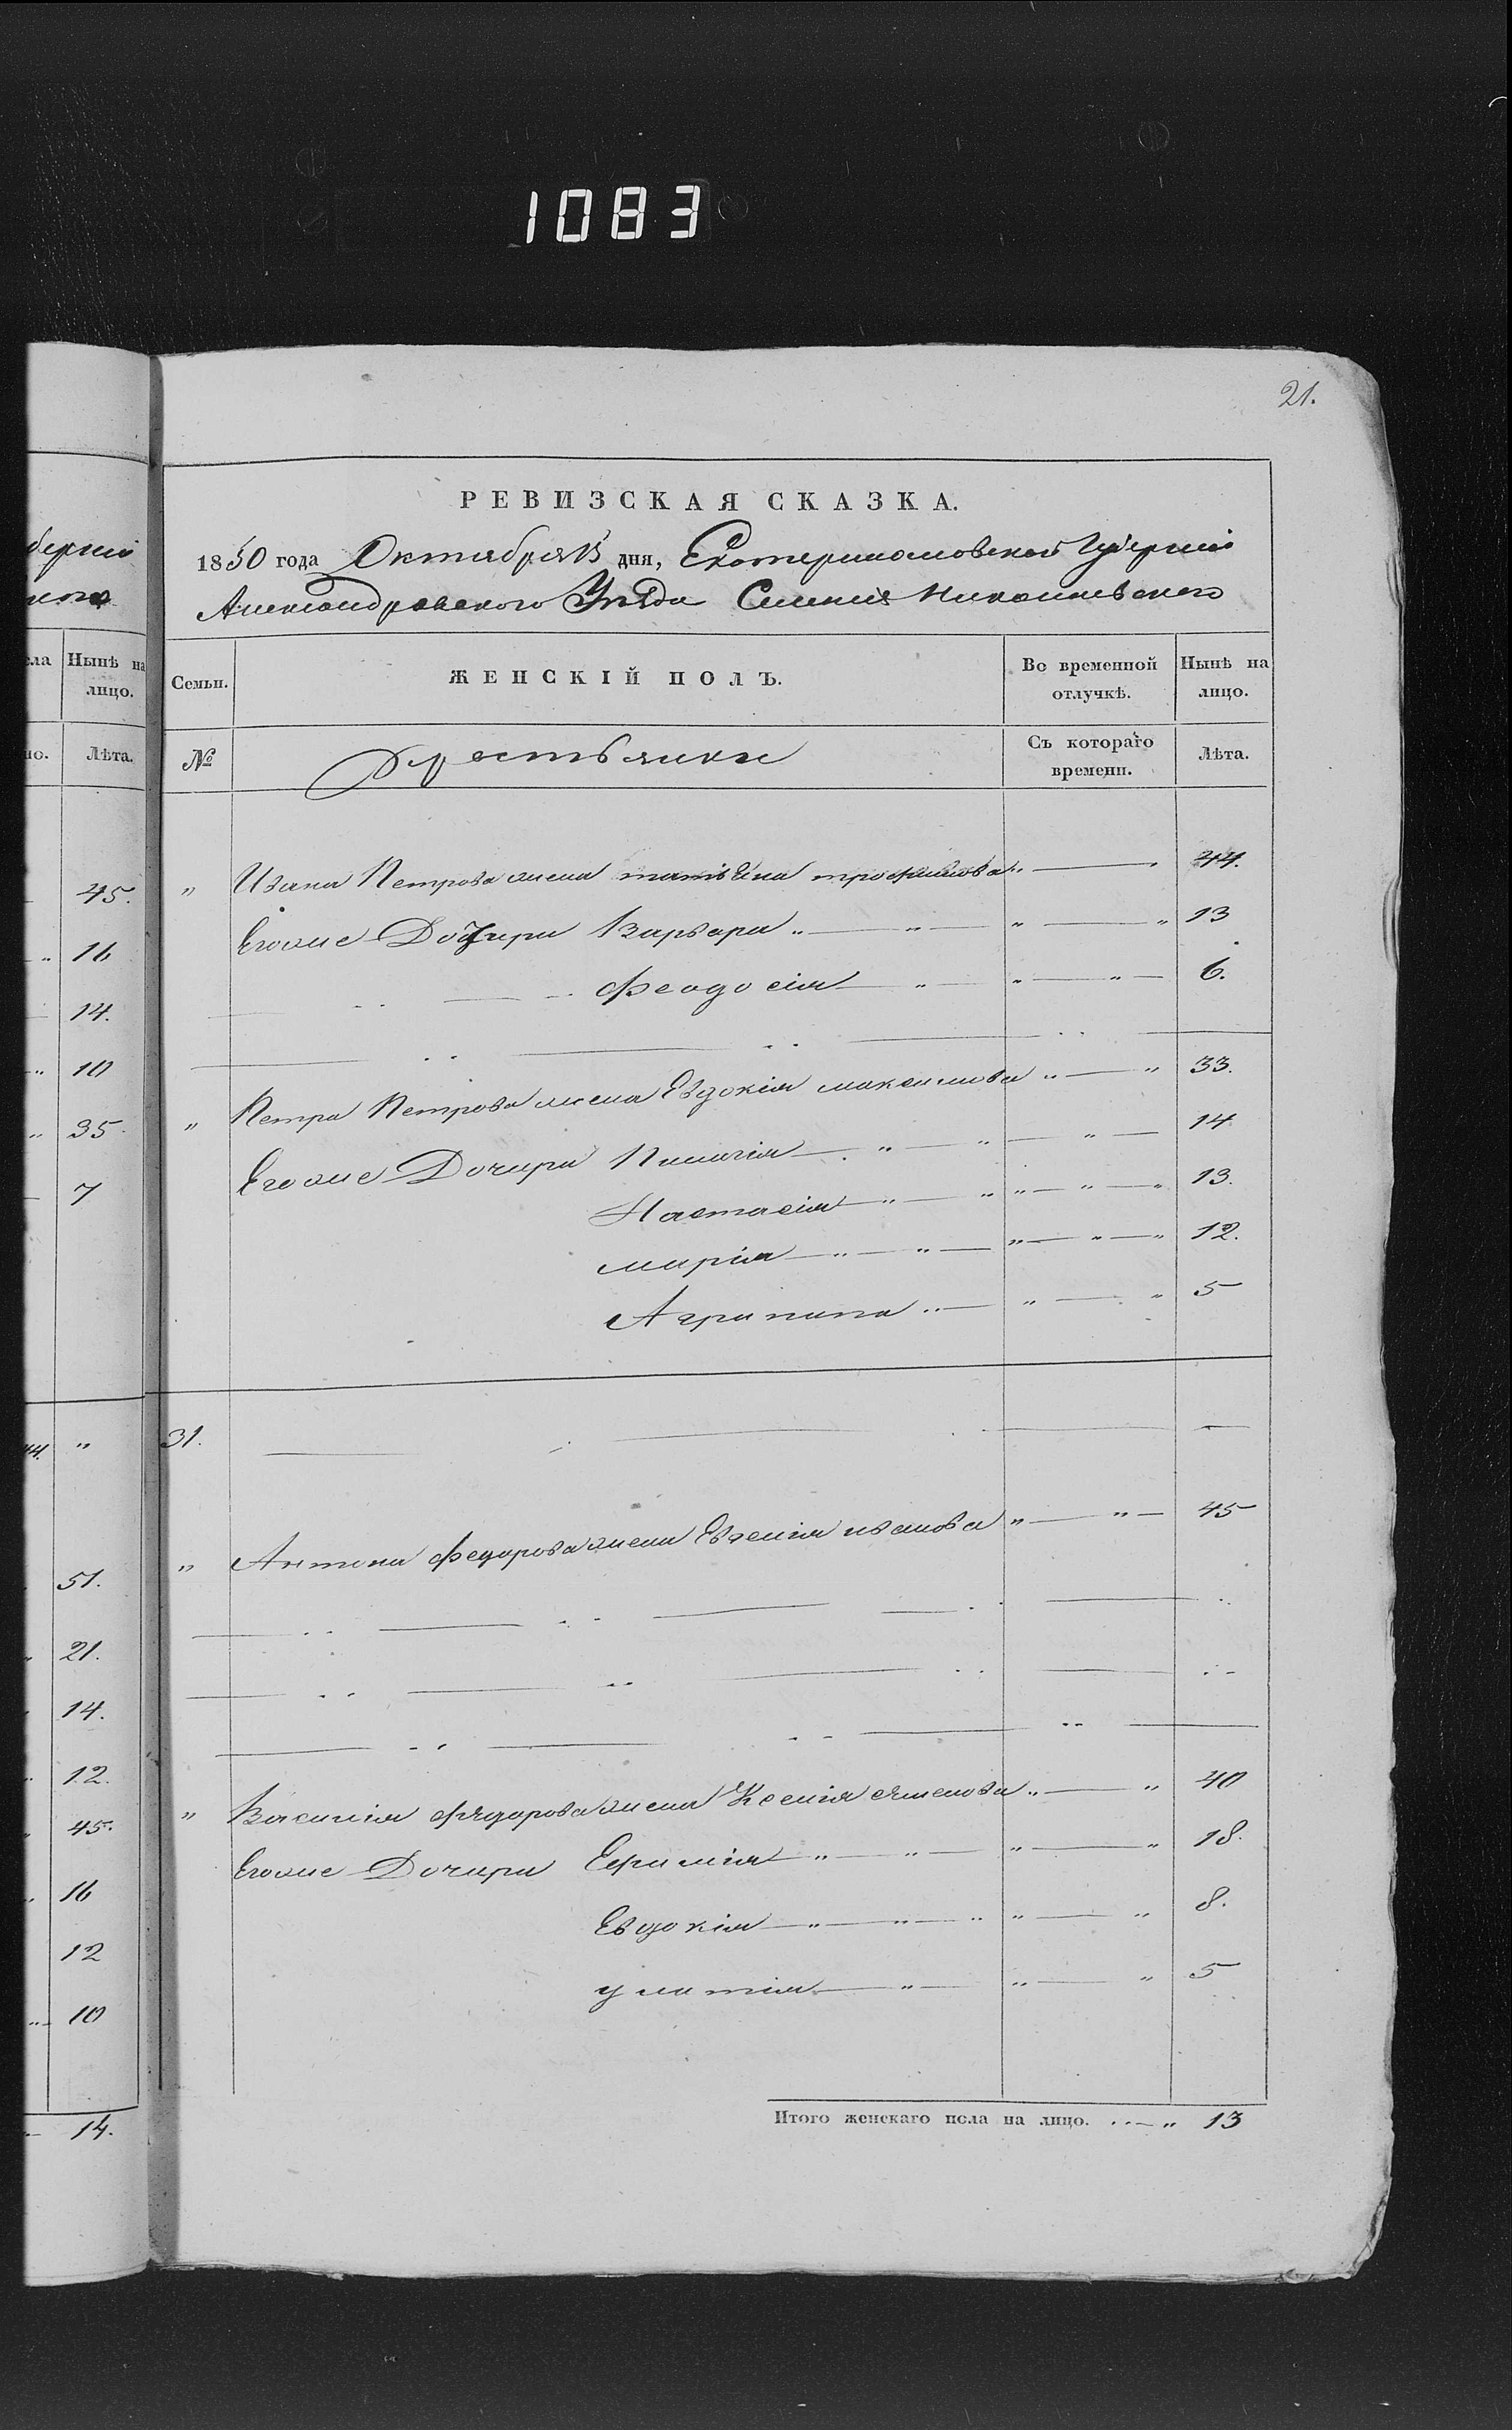 1083
21.
РЕВИЗСКАЯ СКАЗКА.
1850 года Октября 15 дня, Екатеринославской Губерніи
Александровского Уѣзда Селенія Николаевского
Семьи.
ЖЕНСКІЙ ПОЛЪ.
Во временной отлучкѣ.
Нынѣ на лицо.
№
Крестьянки
Съ котораго времени.
Лѣта.
" Ивана Петрова жена татіяна трофимова 44.
Егоже Дочери Варвара 13
Феодосія 6.
" Петра Петрова жена Евдокія максимова 33.
Егоже Дочери Пилагія 14
Настасія 13.
марія 12.
Агрипина 5
31.
" Антона Федорова жена Евгенія иванова 45
" Василія Фядорова жена Ксенія семенова 40
Егоже Дочери Ефимія 18.
Евдокія 8.
улитія 5
Итого женскаго пола на лицо. 13
берніи
кого
ла
Нынѣ на лицо.
но.
Лѣта.
45.
16
14.
10
35
7
44. "
51.
21.
14.
12.
45.
16
12
10
14.